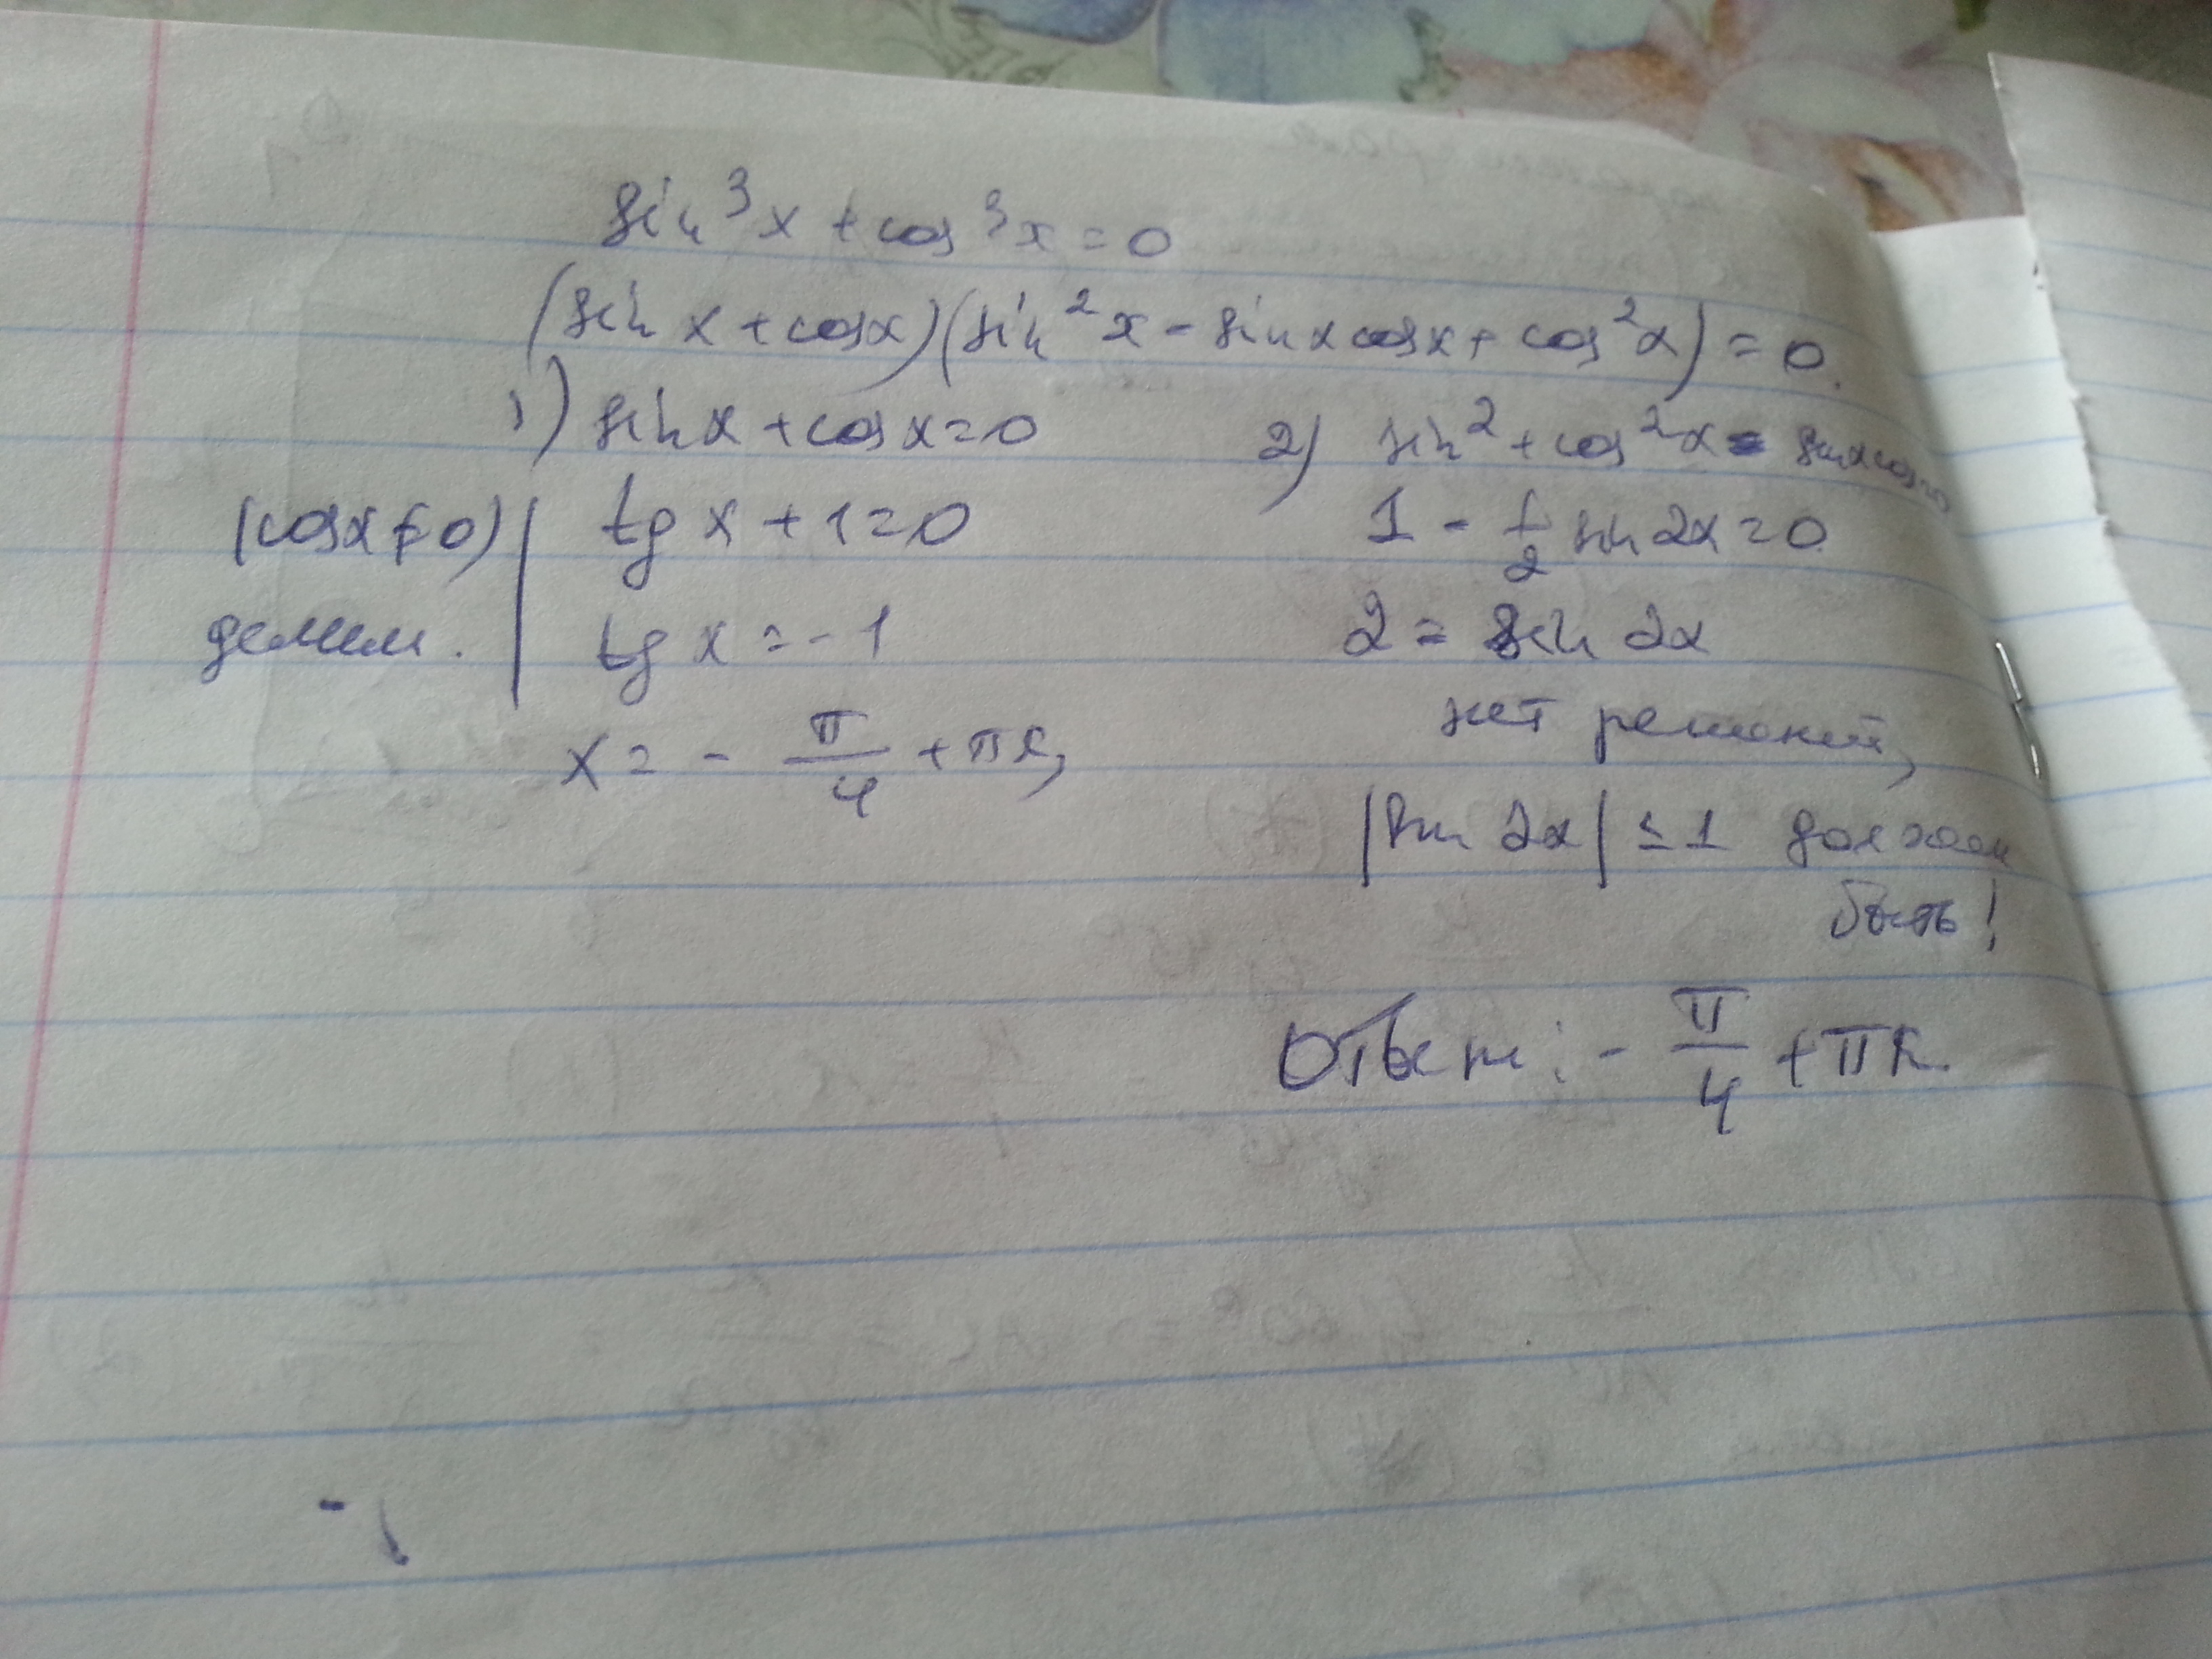 sin³x + cos³x = 0
(sin x + cos x)(sin²x - sin x cos x + cos²x) = 0.
1) sin x + cos x = 0
(cos x ≠ 0) | tg x + 1 = 0
делим. | tg x = -1
x = - π/4 + πk,
2) sin² + cos²x - sin x cos x = 0
1 - 1/2 sin 2x = 0
2 = sin 2x
нет решений,
|sin 2x| ≤ 1 должен
быть!
Ответ: - π/4 + πk.